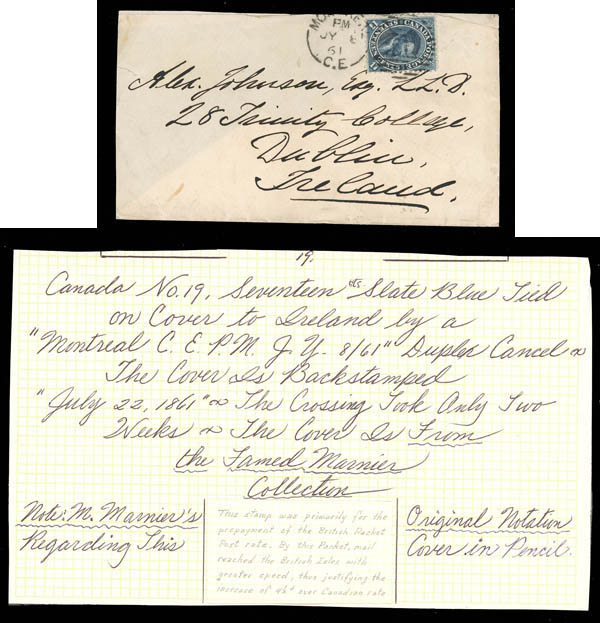 PM
JY 8
61
C.E
CANADA POSTAGE
Alex. Johnson, Esq. L.L.D.
28 Trinity College,
Dublin,
Ireland.
19.
Canada No. 19, Seventeen cts Slate Blue Tied
on Cover to Ireland by a
"Montreal C. E. P.M. J.Y. 8/61" Duplex Cancel ~
The Cover Is Backstamped
"July 22, 1861" ~ The Crossing Took Only Two
Weeks ~ The Cover Is From
the Famed Marnier
Collection
Note: M. Marnier's
Regarding This
This stamp was primarily for the
prepayment of the British Packet
Post rate. By this Packet, mail
reached the British Isles with
greater speed, thus justifying the
increase of 4½d over Canadian rate
Original Notation
Cover in Pencil.